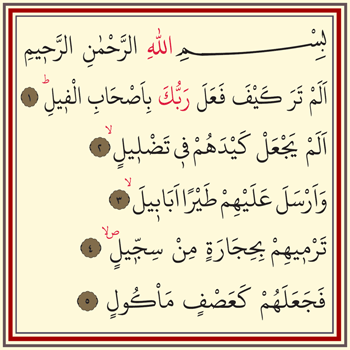 بِسْمِ اللهِ الرَّحْمٰنِ الرَّحٖيمِ
اَلَمْ تَرَ كَيْفَ فَعَلَ رَبُّكَ بِاَصْحَابِ الْفٖيلِؕ ﴿١﴾
اَلَمْ يَجْعَلْ كَيْدَهُمْ فٖى تَضْلٖيلٍۙ ﴿٢﴾
وَاَرْسَلَ عَلَيْهِمْ طَيْرًا اَبَابٖيلَۙ ﴿٣﴾
تَرْمٖيهِمْ بِحِجَارَةٍ مِنْ سِجّٖيلٍۙۖ ﴿٤﴾
فَجَعَلَهُمْ كَعَصْفٍ مَاْكُولٍ ﴿٥﴾